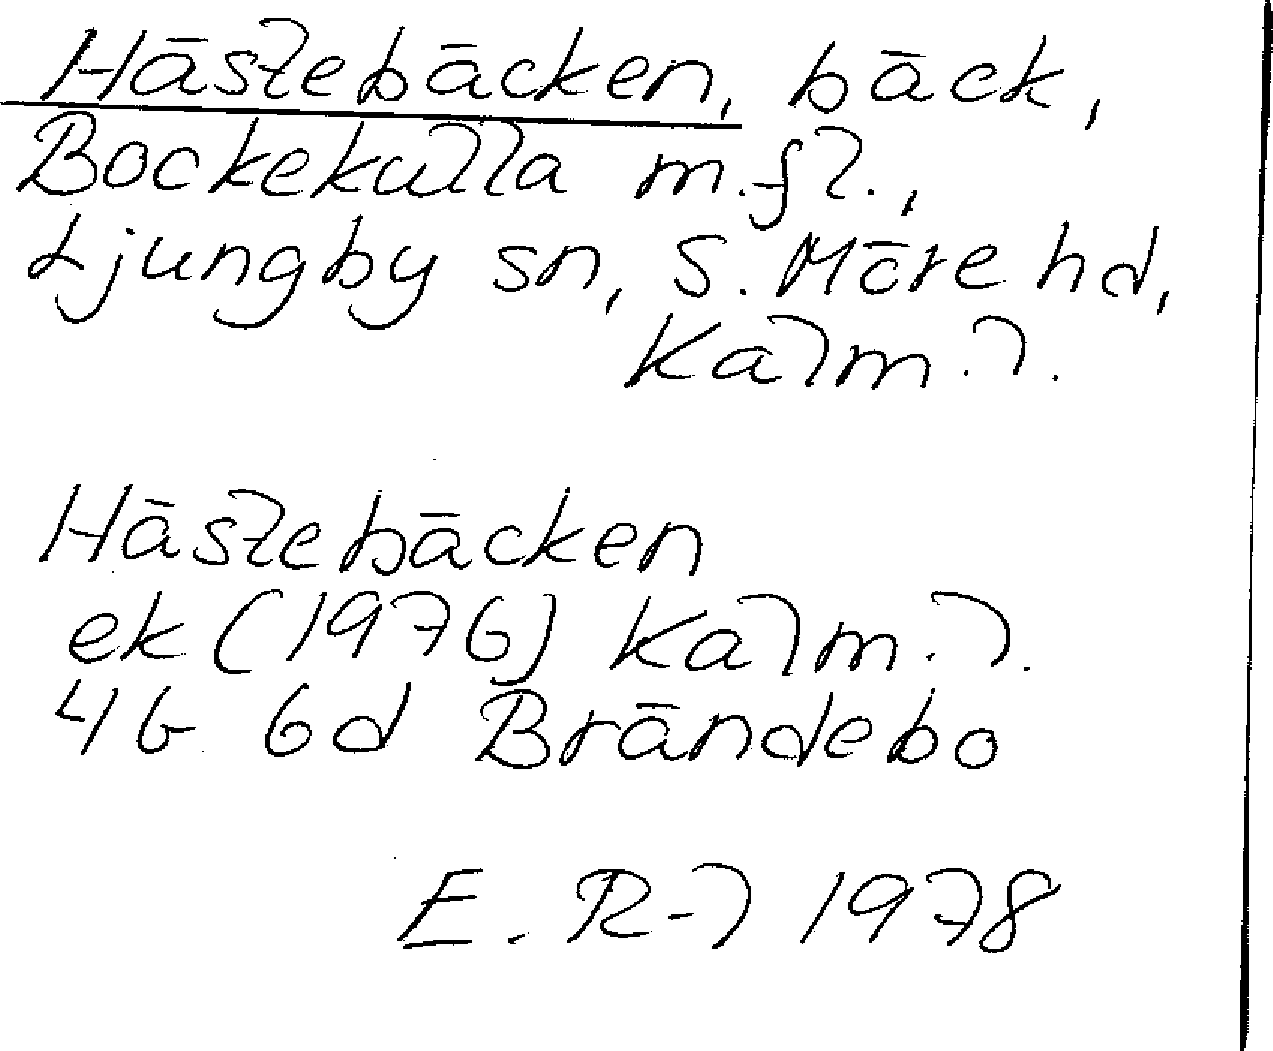 Hästebäcken, bäck,
Bockekulla m.fl.,
Ljungby sn, S. Möre hd,
Kalm. l.
Hästebäcken
ek (1976) Kalm. l.
4G 6d Brändebo
E. R-l 1978